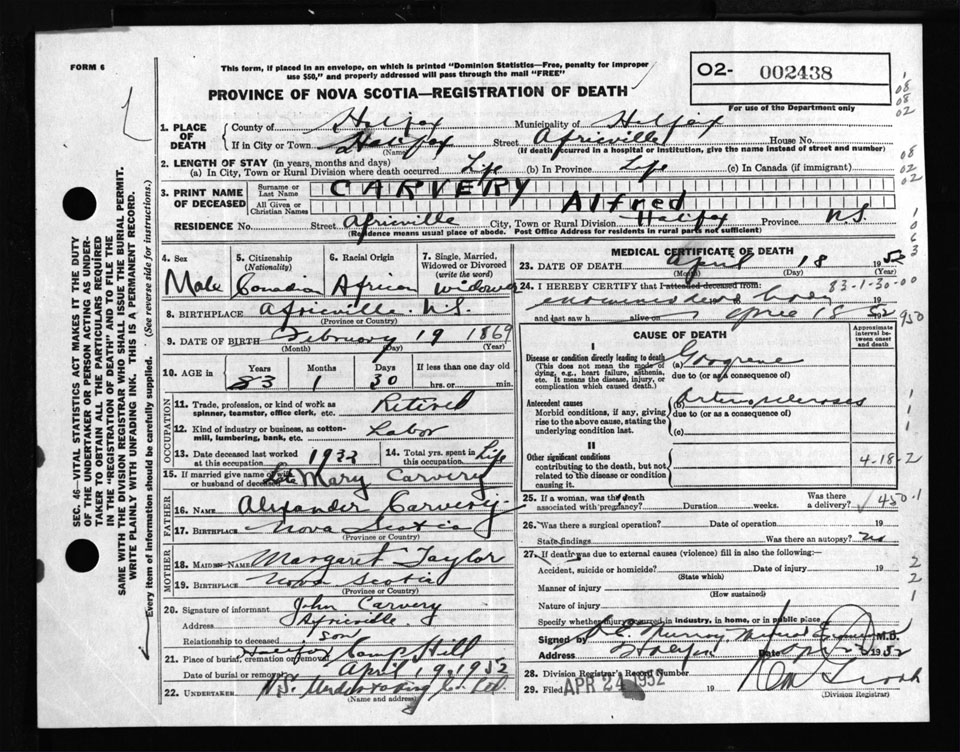 FORM 6
This form, if placed in an envelope, on which is printed "Dominion Statistics—Free, penalty for improper
use $50," and properly addressed will pass through the mail "FREE"
PROVINCE OF NOVA SCOTIA—REGISTRATION OF DEATH
O2- 002438
For use of the Department only
1. PLACE OF DEATH
County of Halifax Municipality of Halifax
If in City or Town Halifax Street Africville House No.
(Name) (If death occurred in a hospital or institution, give the name instead of street and number)
2. LENGTH OF STAY (in years, months and days)
(a) In City, Town or Rural Division where death occurred Life (b) In Province Life (c) In Canada (if immigrant)
3. PRINT NAME OF DECEASED
Surname or Last Name CARVERY
All Given or Christian Names Alfred
RESIDENCE No. Street Africville City, Town or Rural Division Halifax Province N.S.
(Residence means usual place of abode. Post Office Address for residents in rural parts not sufficient)
4. Sex Male
5. Citizenship (Nationality) Canadian
6. Racial Origin African
7. Single, Married, Widowed or Divorced (write the word) Widower
8. BIRTHPLACE Africville N.S.
(Province or Country)
9. DATE OF BIRTH February 19 1869
(Month) (Day) (Year)
10. AGE in Years Months Days If less than one day
83 1 30 hrs. or min.
OCCUPATION
11. Trade, profession, or kind of work as spinner, teamster, office clerk, etc. Retired
12. Kind of industry or business, as cotton-mill, lumbering, bank, etc. Labor
13. Date deceased last worked at this occupation 1933
14. Total yrs. spent in this occupation Life
15. If married give name of wife or husband of deceased Late Mary Carvery
FATHER
16. NAME Alexander Carvery
17. BIRTHPLACE Nova Scotia
(Province or Country)
MOTHER
18. MAIDEN NAME Margaret Taylor
19. BIRTHPLACE Nova Scotia
(Province or Country)
20. Signature of informant John Carvery
Address Africville
Relationship to deceased son
21. Place of burial, cremation or removal Halifax Camp Hill
Date of burial or removal April 19, 1952
22. UNDERTAKER N.S. Undertaking Co. Ltd.
(Name and address)
MEDICAL CERTIFICATE OF DEATH
23. DATE OF DEATH April 18 1952
(Month) (Day) (Year)
24. I HEREBY CERTIFY that I attended deceased from: 83-1-30-00
examined dead body
and last saw h alive on April 18 1952
950
CAUSE OF DEATH
Approximate interval between onset and death
I
Disease or condition directly leading to death
(This does not mean the mode of dying, e.g., heart failure, asthenia, etc. It means the disease, injury, or complication which caused death.)
(a) Gangrene
due to (or as a consequence of)
Antecedent causes
Morbid conditions, if any, giving rise to the above cause, stating the underlying condition last.
(b) Arteriosclerosis
due to (or as a consequence of)
(c)
II
Other significant conditions
contributing to the death, but not related to the disease or condition causing it.
4-18-2
25. If a woman, was the death associated with pregnancy? Duration weeks. Was there a delivery?
450.1
26. Was there a surgical operation? Date of operation 19
State findings Was there an autopsy? no
27. If death was due to external causes (violence) fill in also the following:—
Accident, suicide or homicide? Date of injury 19
(State which)
Manner of injury
(How sustained)
Nature of injury
Specify whether injury occurred in industry, in home, or in public place
Signed by Murray, Medical Examiner M.D.
Address Halifax Date 1952
28. Division Registrar's Record Number
29. Filed APR 24 1952 19
(Division Registrar)
SEC. 46—VITAL STATISTICS ACT MAKES IT THE DUTY
OF THE UNDERTAKER OR PERSON ACTING AS UNDER-
TAKER TO OBTAIN ALL THE PARTICULARS REQUIRED
IN THE "REGISTRATION OF DEATH" AND TO FILE THE
SAME WITH THE DIVISION REGISTRAR WHO SHALL ISSUE THE BURIAL PERMIT.
WRITE PLAINLY WITH UNFADING INK. THIS IS A PERMANENT RECORD.
Every item of information should be carefully supplied. (See reverse side for instructions.)